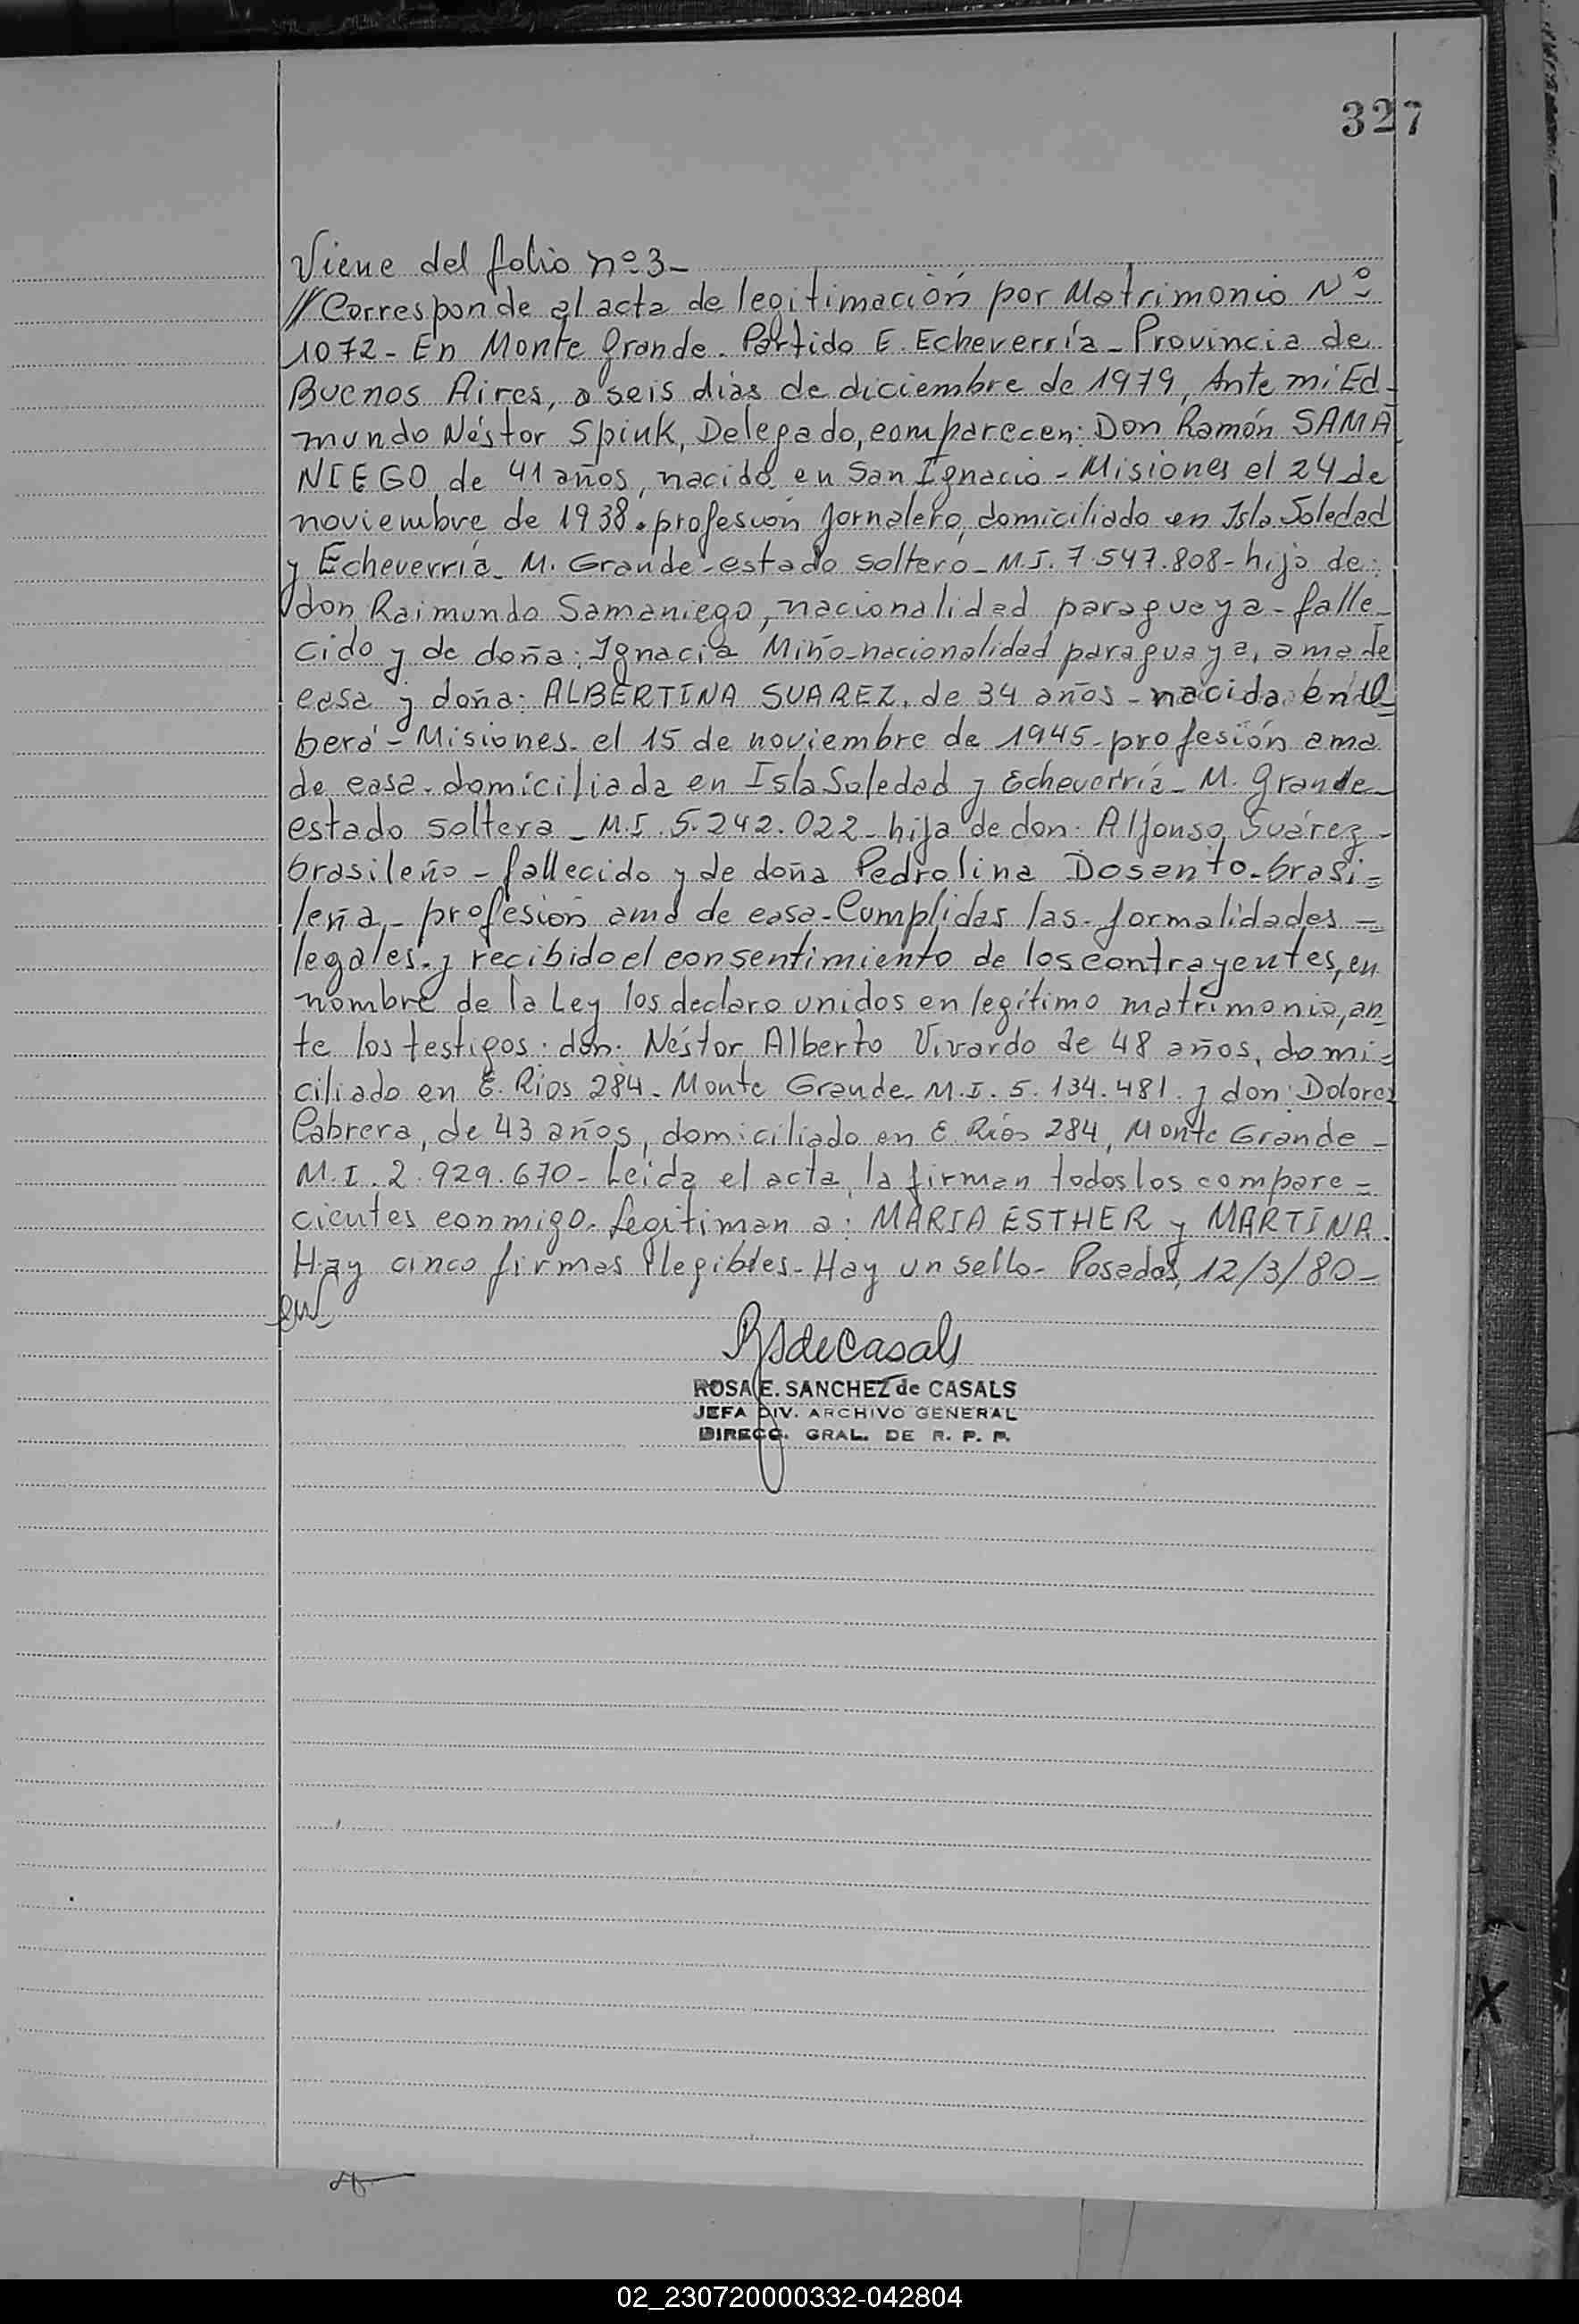 327
Viene del folio nº 3-
//Corresponde al acta de legitimación por Matrimonio Nº
1072- En Monte Grande. Partido E. Echeverría- Provincia de
Buenos Aires, a seis días de diciembre de 1979, Ante mí Ed-
mundo Néstor Spink, Delegado, comparecen: Don Ramón SAMA
NIEGO de 41 años, nacido en San Ignacio - Misiones el 24 de
noviembre de 1938. profesión jornalero, domiciliado en Isla Soledad
y Echeverría- M. Grande- estado soltero- M.I. 7.547.808- hijo de:
don Raimundo Samaniego, nacionalidad paraguaya- falle-
cido y de doña: Ignacia Miño-nacionalidad paraguaya, ama de
casa y doña: ALBERTINA SUAREZ, de 34 años - nacida en
berá - Misiones- el 15 de noviembre de 1945- profesión ama
de casa- domiciliada en Isla Soledad y Echeverría- M. Grande-
estado soltera - M.I. 5.242.022- hija de don: Alfonso Suárez-
brasileño - fallecido y de doña Pedrolina Dosento- brasi=
leña- profesión ama de casa- Cumplidas las formalidades =
legales, y recibido el consentimiento de los contrayentes, en
nombre de la Ley los declaro unidos en legítimo matrimonio, an
te los testigos: don: Néstor Alberto Vivardo de 48 años, domi=
ciliado en E. Rios 284- Monte Grande- M.I. 5.134.481. y don: Dolores
Cabrera, de 43 años, domiciliado en E. Rios 284, Monte Grande-
M.I. 2.929.670- Leída el acta, la firman todos los compare=
cientes conmigo- Legitiman a: MARIA ESTHER y MARTINA.
Hay cinco firmas ilegibles- Hay un sello- Posadas, 12/3/80-
RSdeCasals
ROSA E. SANCHEZ de CASALS
JEFA DIV. ARCHIVO GENERAL
DIRECC. GRAL. DE R. P. P.
X
02_230720000332-042804